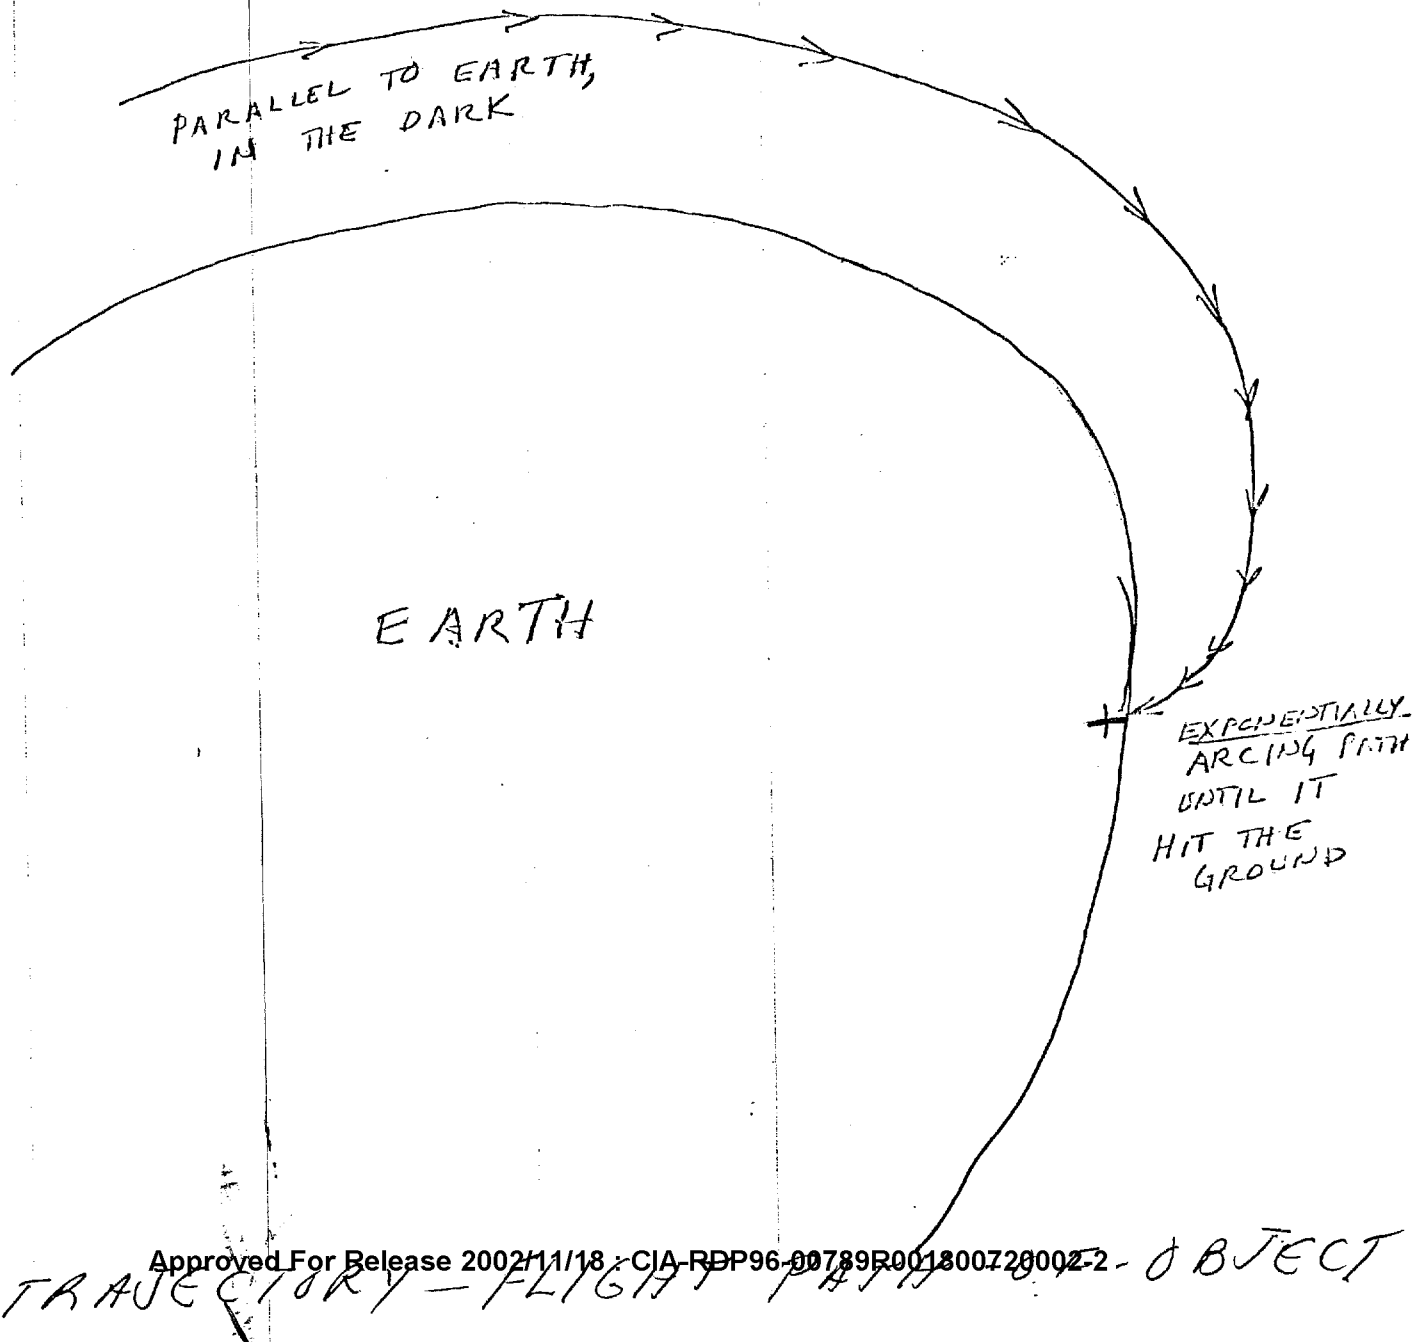 PARALLEL TO EARTH,
IN THE DARK
EARTH
EXPONENTIALLY
ARCING PATH
UNTIL IT
HIT THE
GROUND
Approved For Release 2002/11/18 : CIA-RDP96-00789R001800720002-2
TRAJECTORY - FLIGHT PATH - OF - OBJECT